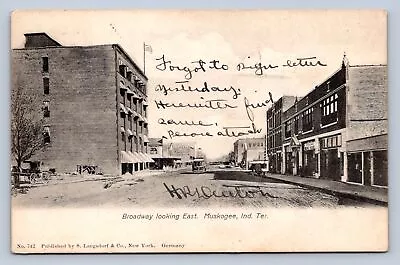 Forgot to sign letter
yesterday.
Herewiter find
same,
Broadway looking East. Muskogee, Ind. Ter.
No. 742 Published by S. Langsdorf & Co., New York. Germany